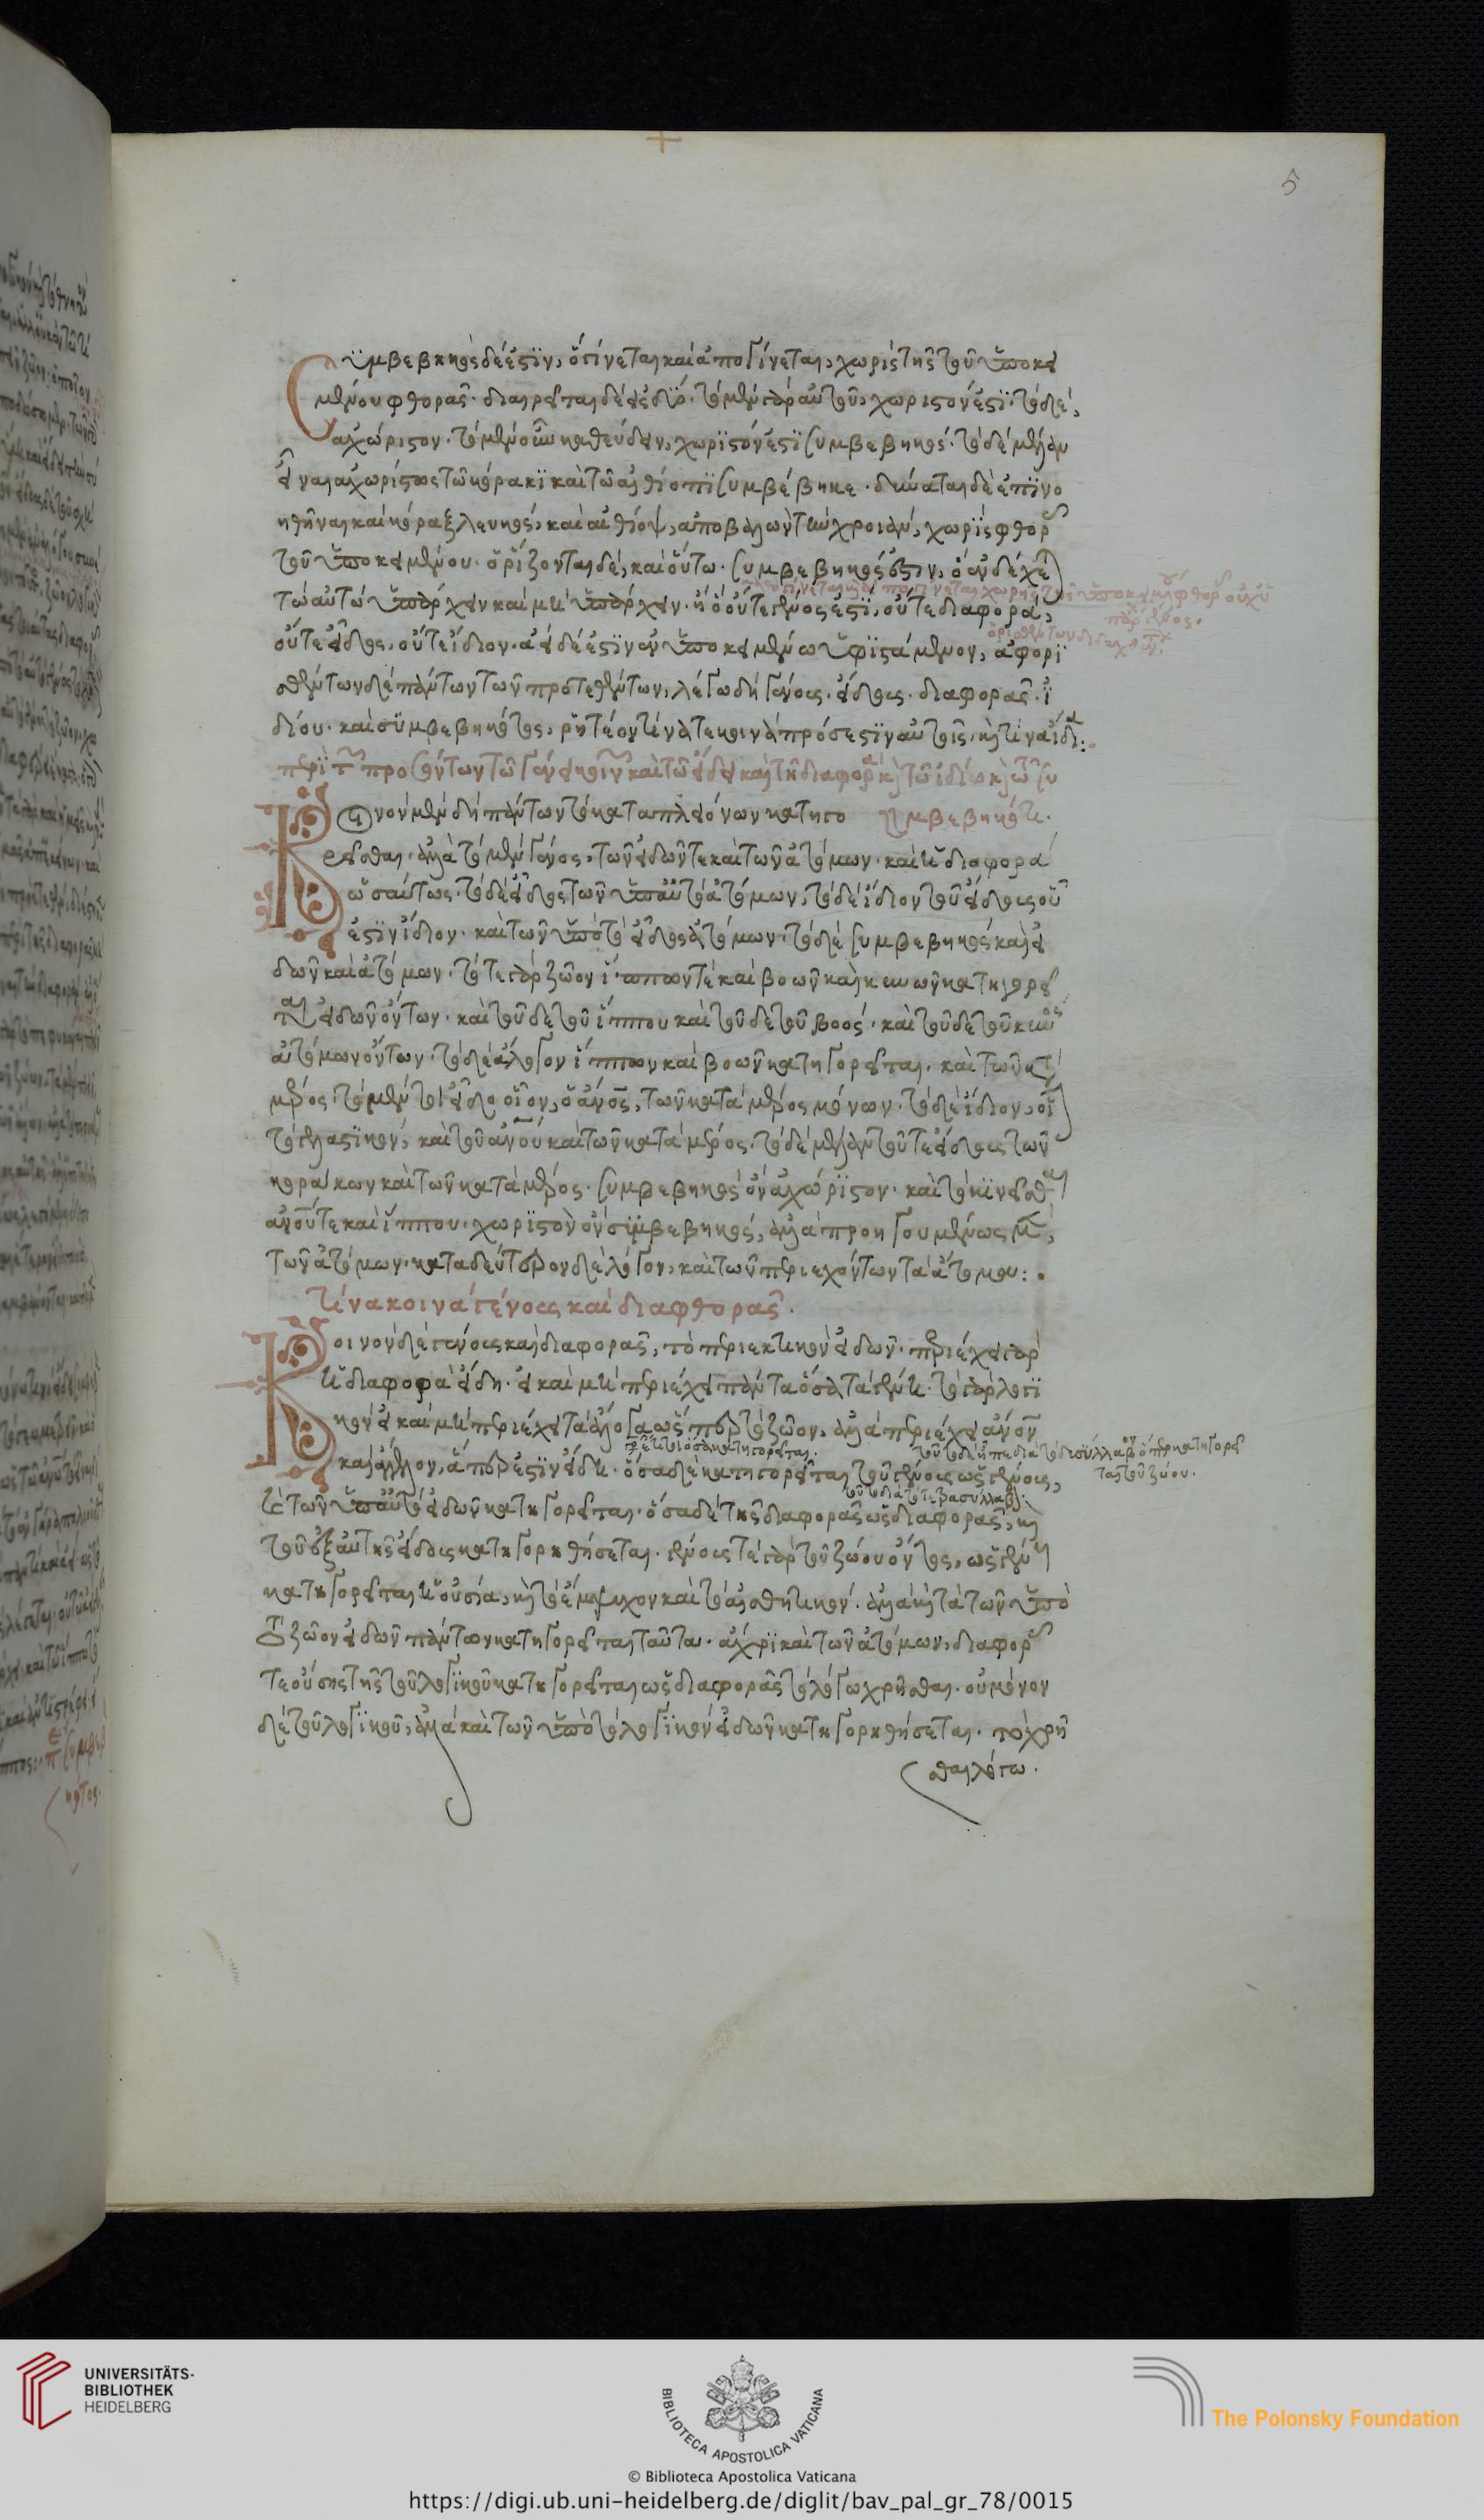 5
Συμβεβηκὸς δέ ἐστιν, ὃ γίνεται καὶ ἀπογίνεται, χωρὶς τῆς τοῦ ὑποκει
μένου φθορᾶς. διαιρεῖται δὲ εἰς δύο. τὸ μὲν γὰρ αὐτοῦ, χωριστόν ἐστι. τὸ δὲ,
ἀχώριστον. τὸ μὲν οὖν καθεύδειν, χωριστόν ἐστι συμβεβηκός. τὸ δὲ μέλαν
εἶναι ἀχωρίστως τῶ κόρακι καὶ τῶ αἰθίοπι συμβέβηκε. δύναται δὲ ἐπινο
ηθῆναι καὶ κόραξ λευκός, καὶ αἰθίοψ, ἀποβαλὼν τὴν χροιὰν, χωρὶς φθορᾶς
τοῦ ὑποκειμένου. ὁρίζονται δὲ, καὶ οὕτω. συμβεβηκός ἐστιν, ὃ ἐνδέχε
τῶ αὐτῶ ὑπάρχειν καὶ μὴ ὑπάρχειν. ἢ ὃ οὔτε γένος ἐστὶ, οὔτε διαφορά,
οὔτε εἶδος, οὔτε ἴδιον. ἀεὶ δέ ἐστιν ἐν ὑποκειμένω ὑφιστάμενον, ἀφορι
σμένων δὲ πάντων τῶν προτεθέντων, λέγω δὴ γένους. εἴδους. διαφορᾶς. ἰ
δίου. καὶ συμβεβηκότος, ῥητέον τίνα τε κοινὰ πρόσεστιν αὐτοῖς, καὶ τίνα ἴδια:
κοινὸν μὲν δὴ πάντων τὸ κατὰ πλειόνων κατηγο
συμβεβηκότι.
ρεῖσθαι. ἀλλὰ τὸ μὲν γένος, τῶν εἰδῶν τε καὶ τῶν ἀτόμων. καὶ ἡ διαφορὰ
ὡσαύτως. τὸ δὲ εἶδος τῶν ὑπ' αὐτὸ ἀτόμων, τὸ δὲ ἴδιον τοῦ εἴδους οὗ
ἐστιν ἴδιον. καὶ τῶν ὑπὸ τὸ εἶδος ἀτόμων. τὸ δὲ συμβεβηκὸς καὶ εἰ
δῶν καὶ ἀτόμων. τό τε γὰρ ζῶον ἵππων τε καὶ βοῶν καὶ κυνῶν κατηγορεῖ
ται εἰδῶν ὄντων. καὶ τοῦδε τοῦ ἵππου καὶ τοῦδε τοῦ βοός. καὶ τοῦδε τοῦ κυνὸς
ἀτόμων ὄντων. τὸ δὲ ἄλογον ἵππων καὶ βοῶν κατηγορεῖται. καὶ τῶν κατὰ
μέρος. τὸ μέντοι εἶδος οἷον, ὁ ἄνος, τῶν κατὰ μέρος μόνων. τὸ δὲ ἴδιον, οἷον
τὸ γελαστικόν, καὶ τοῦ ἀνου καὶ τῶν κατὰ μέρος. τὸ δὲ μέλαν τοῦ τε εἴδους τῶν
κοράκων καὶ τῶν κατὰ μέρος. συμβεβηκὸς ὂν ἀχώριστον. καὶ τὸ κινεῖσθαι
ἀνου τε καὶ ἵππου. χωριστὸν ὂν συμβεβηκός, ἀλλὰ προηγουμένως μὲν,
τῶν ἀτόμων. κατὰ δεύτερον δὲ λόγον, καὶ τῶν περιεχόντων τὰ ἄτομα:
Τίνα κοινὰ γένους καὶ διαφθορᾶς.
Κοινὸν δὲ γένους καὶ διαφορᾶς, τὸ περιεκτικὸν εἰδῶν. περιέχει γὰρ
ἡ διαφορὰ εἴδη. εἰ καὶ μὴ περιέχει πάντα ὅσα τὰ γένη. τὸ γὰρ λογι
κὸν εἰ καὶ μὴ περιέχει τὰ ἄλογα ὥσπερ τὸ ζῶον, ἀλλὰ περιέχει ἄνον
καὶ ἄγγελον, ἅπερ ἐστὶν εἴδη. ὅσα δὲ κατηγορεῖται τοῦ γένους ὡς γένους,
καὶ τῶν ὑπ' αὐτὸ εἰδῶν κατηγορεῖται. ὅσα δὲ τῆς διαφορᾶς ὡς διαφορᾶς, καὶ
τοῦ ἐξ αὐτῆς εἴδους κατηγορηθήσεται. γένους τε γὰρ τοῦ ζώου ὄντος, ὡς γένους
κατηγορεῖται ἡ οὐσία, καὶ τὸ ἔμψυχον καὶ τὸ αἰσθητικόν. ἀλλὰ καὶ κατὰ τῶν ὑπὸ
τὸ ζῶον εἰδῶν πάντων κατηγορεῖται ταῦτα. ἄχρι καὶ τῶν ἀτόμων, διαφορᾶς
τε οὔσης τῆς τοῦ λογικοῦ κατηγορεῖται ὡς διαφορᾶς τὸ λόγω χρῆσθαι. οὐ μόνον
δὲ τοῦ λογικοῦ, ἀλλὰ καὶ τῶν ὑπὸ τὸ λογικὸν εἰδῶν κατηγορηθήσεται. τὸ χρῆ
σθαι λόγω.
UNIVERSITÄTS-
BIBLIOTHEK
HEIDELBERG
BIBLIOTECA APOSTOLICA VATICANA
The Polonsky Foundation
© Biblioteca Apostolica Vaticana
https://digi.ub.uni-heidelberg.de/diglit/bav_pal_gr_78/0015